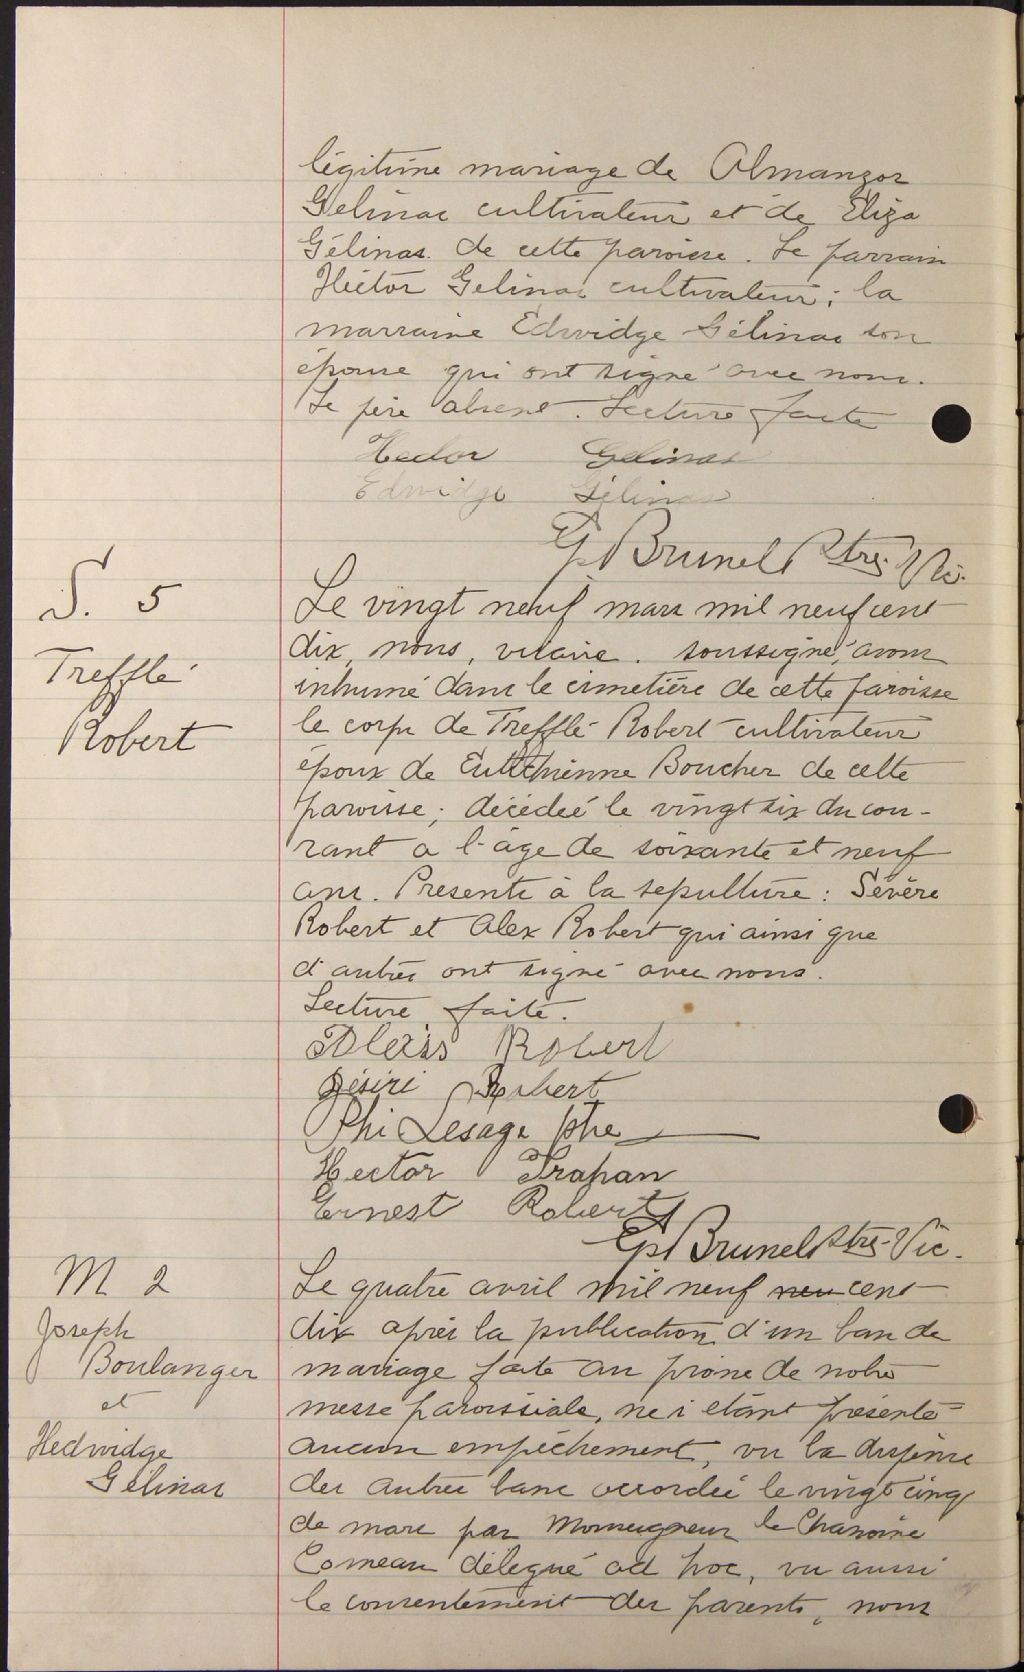 légitime mariage de Almanzor
Gelinas cultivateur et de Eliza
Gélinas. de cette paroisse. Le parrain
Hector Gelinas cultivateur; la
marraine Edwidge Gélinas son
épouse qui ont signé avec nous.
Le père absent. Lecture faite
Hector Gelinas
Edwidge Gélinas
Ep Brunel Ptre Vic.
S. 5
Trefflé
Robert
Le vingt neuf mars mil neuf cent
dix, nous, vicaire. soussigné, avons
inhumé dans le cimetière de cette paroisse
le corps de Trefflé Robert cultivateur
époux de Boucher de cette
paroisse; décédeé le vingt six du cou-
rant a l-âge de soixante et neuf
ans. Presents à la sepulture: Sévère
Robert et Alex Robert qui ainsi que
d'autres ont signé avec nous.
Lecture faite.
Alexis Robert
Désiré Robert
Phi Lesage ptre
Hector Trahan
Ernest Robert
Ep Brunel Ptre Vic.
M 2
Joseph
Boulanger
et
Hedwidge
Gélinas
Le quatre avril mil neuf neu cent
dix après la publication d'un ban de
mariage faite au prône de notre
messe paroissiale, ne s'étant présenté
aucun empêchement, vu la dispense
des autres bans accordée le vingt cinq
de mars par Monseigneur le Chanoine
Comeau délégué ad hoc, vu aussi
le consentement des parents, nous